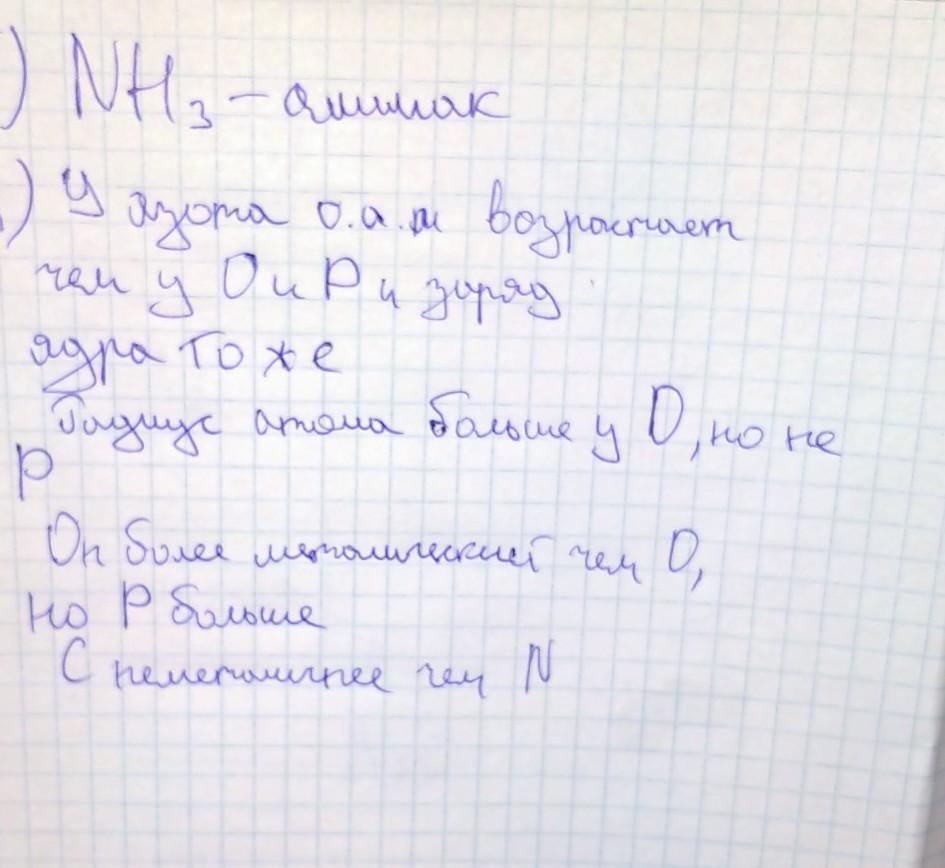 ) NH₃ – аммиак
) У азота о.а.м возрастает
чем у О и Р и заряд
ядра тоже
Радиус атома больше у О, но не
Р
Он более металлический чем О,
но Р больше
С неметалличнее чем N